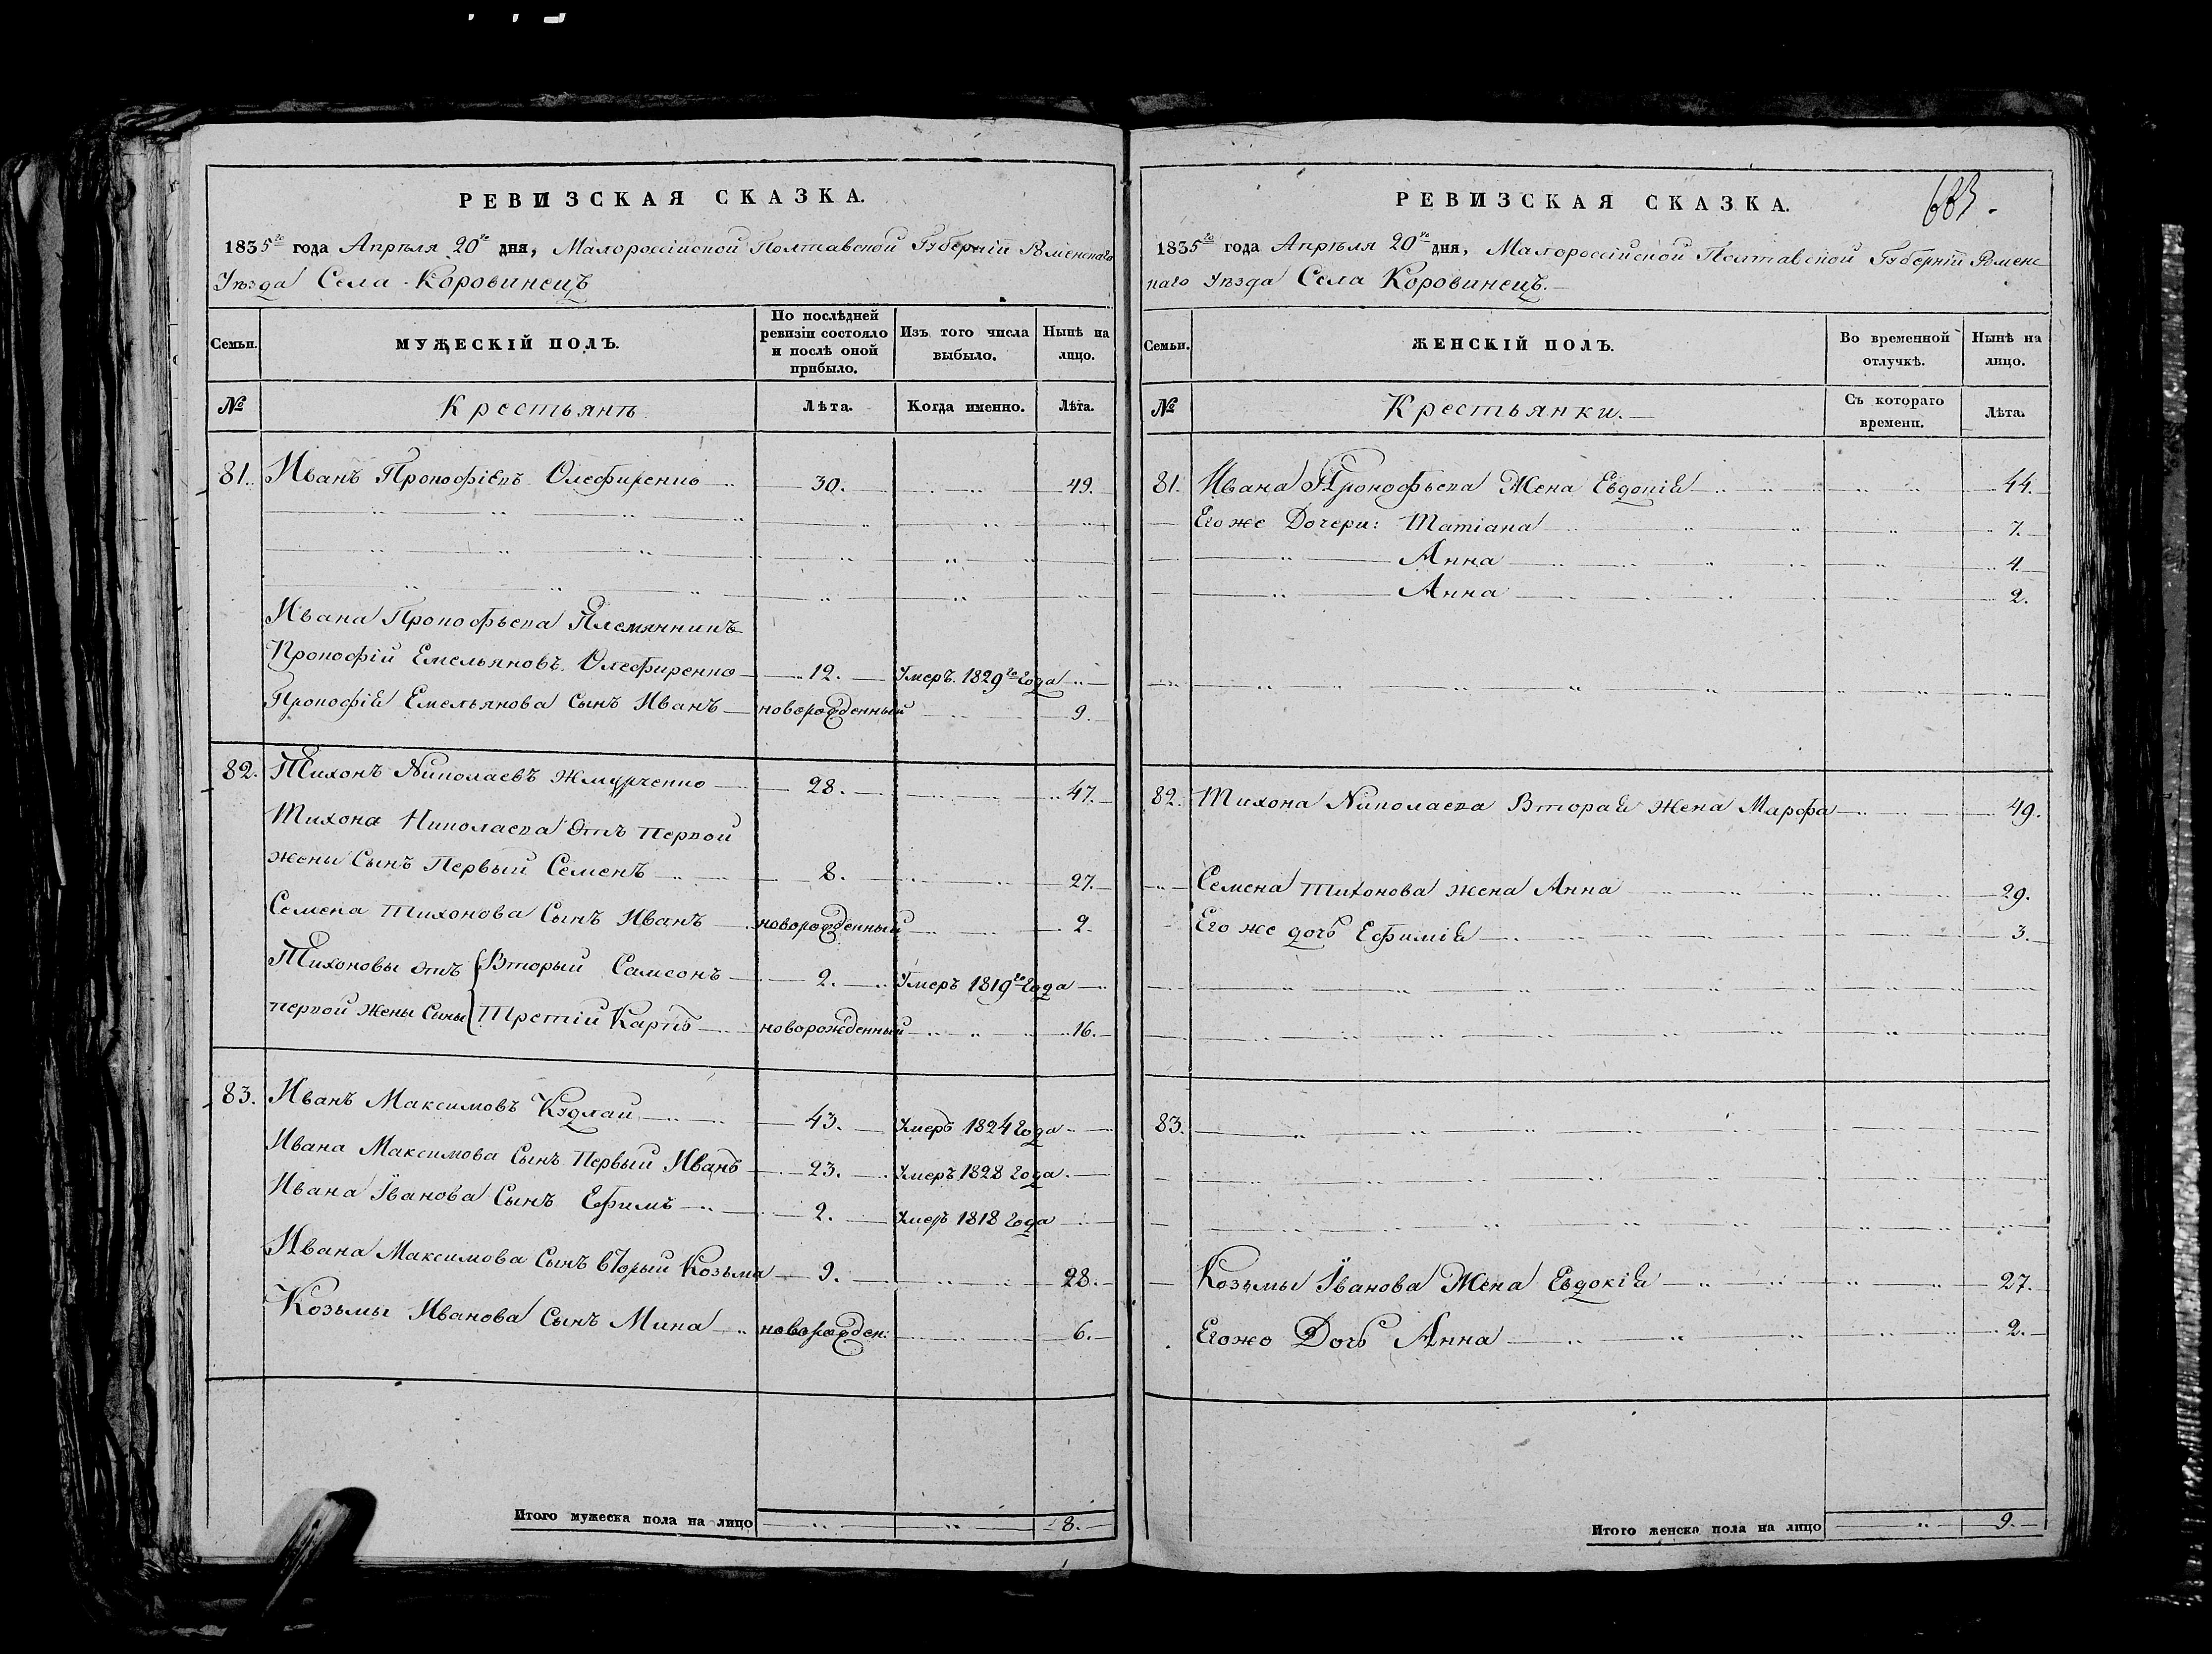 РЕВИЗСКАЯ СКАЗКА.
1835го года Апрѣля 20го дня, Малороссійской Полтавской Губерніи Роменскаго
Уѣзда Села Коровинецъ
Семьи. МУЖЕСКІЙ ПОЛЪ. По послѣдней ревизіи состояло и послѣ оной прибыло. Изъ того числа выбыло. Нынѣ на лицо.
№ Крестьянъ Лѣта. Когда именно. Лѣта.
81. Иванъ Прокофіевъ Олефиренко 30. 49.
Ивана Прокофьева Племянникъ
Прокофій Емельяновъ Олефиренко 12. Умеръ 1829го года
Прокофія Емельянова Сынъ Иванъ новорожденный 9.
82. Тихонъ Николаевъ Жмурченко 28. 47.
Тихона Николаева Отъ Первой
жены Сынъ Первый Семенъ 8. 27.
Семена Тихонова Сынъ Иванъ новорожденный 2.
Тихоновы отъ Вторый Самсонъ 2. Умеръ 1819го года
первой Жены Сыны Третій Карпъ новорожденный 16.
83. Иванъ Максимовъ Кудлай 43. Умеръ 1824 года
Ивана Максимова Сынъ Первый Иванъ 23. Умеръ 1828 года
Ивана Іванова Сынъ Ефимъ 2. Умеръ 1818 года
Ивана Максимова Сынъ вторый Козьма 9. 28.
Козьмы Иванова Сынъ Мина новорожден: 6.
Итого мужеска пола на лицо 8.
РЕВИЗСКАЯ СКАЗКА.
1835го года Апрѣля 20го дня, Малороссійской Полтавской Губерніи Роменс
каго Уѣзда Села Коровинецъ.
Семьи. ЖЕНСКІЙ ПОЛЪ. Во временной отлучкѣ. Нынѣ на лицо.
№ Крестьянки. Съ котораго времени. Лѣта.
81. Ивана Прокофьева Жена Евдокія 44.
Его же Дочери: Татіана 7.
Анна 4.
Анна 2.
82. Тихона Николаева Вторая жена Марфа 49.
Семена Тихонова жена Анна 29.
Его же дочь Ефимія 3.
83.
Козьмы Іванова Жена Евдокія 27.
Егожо Дочь Анна 2.
Итого женска пола на лицо 9.